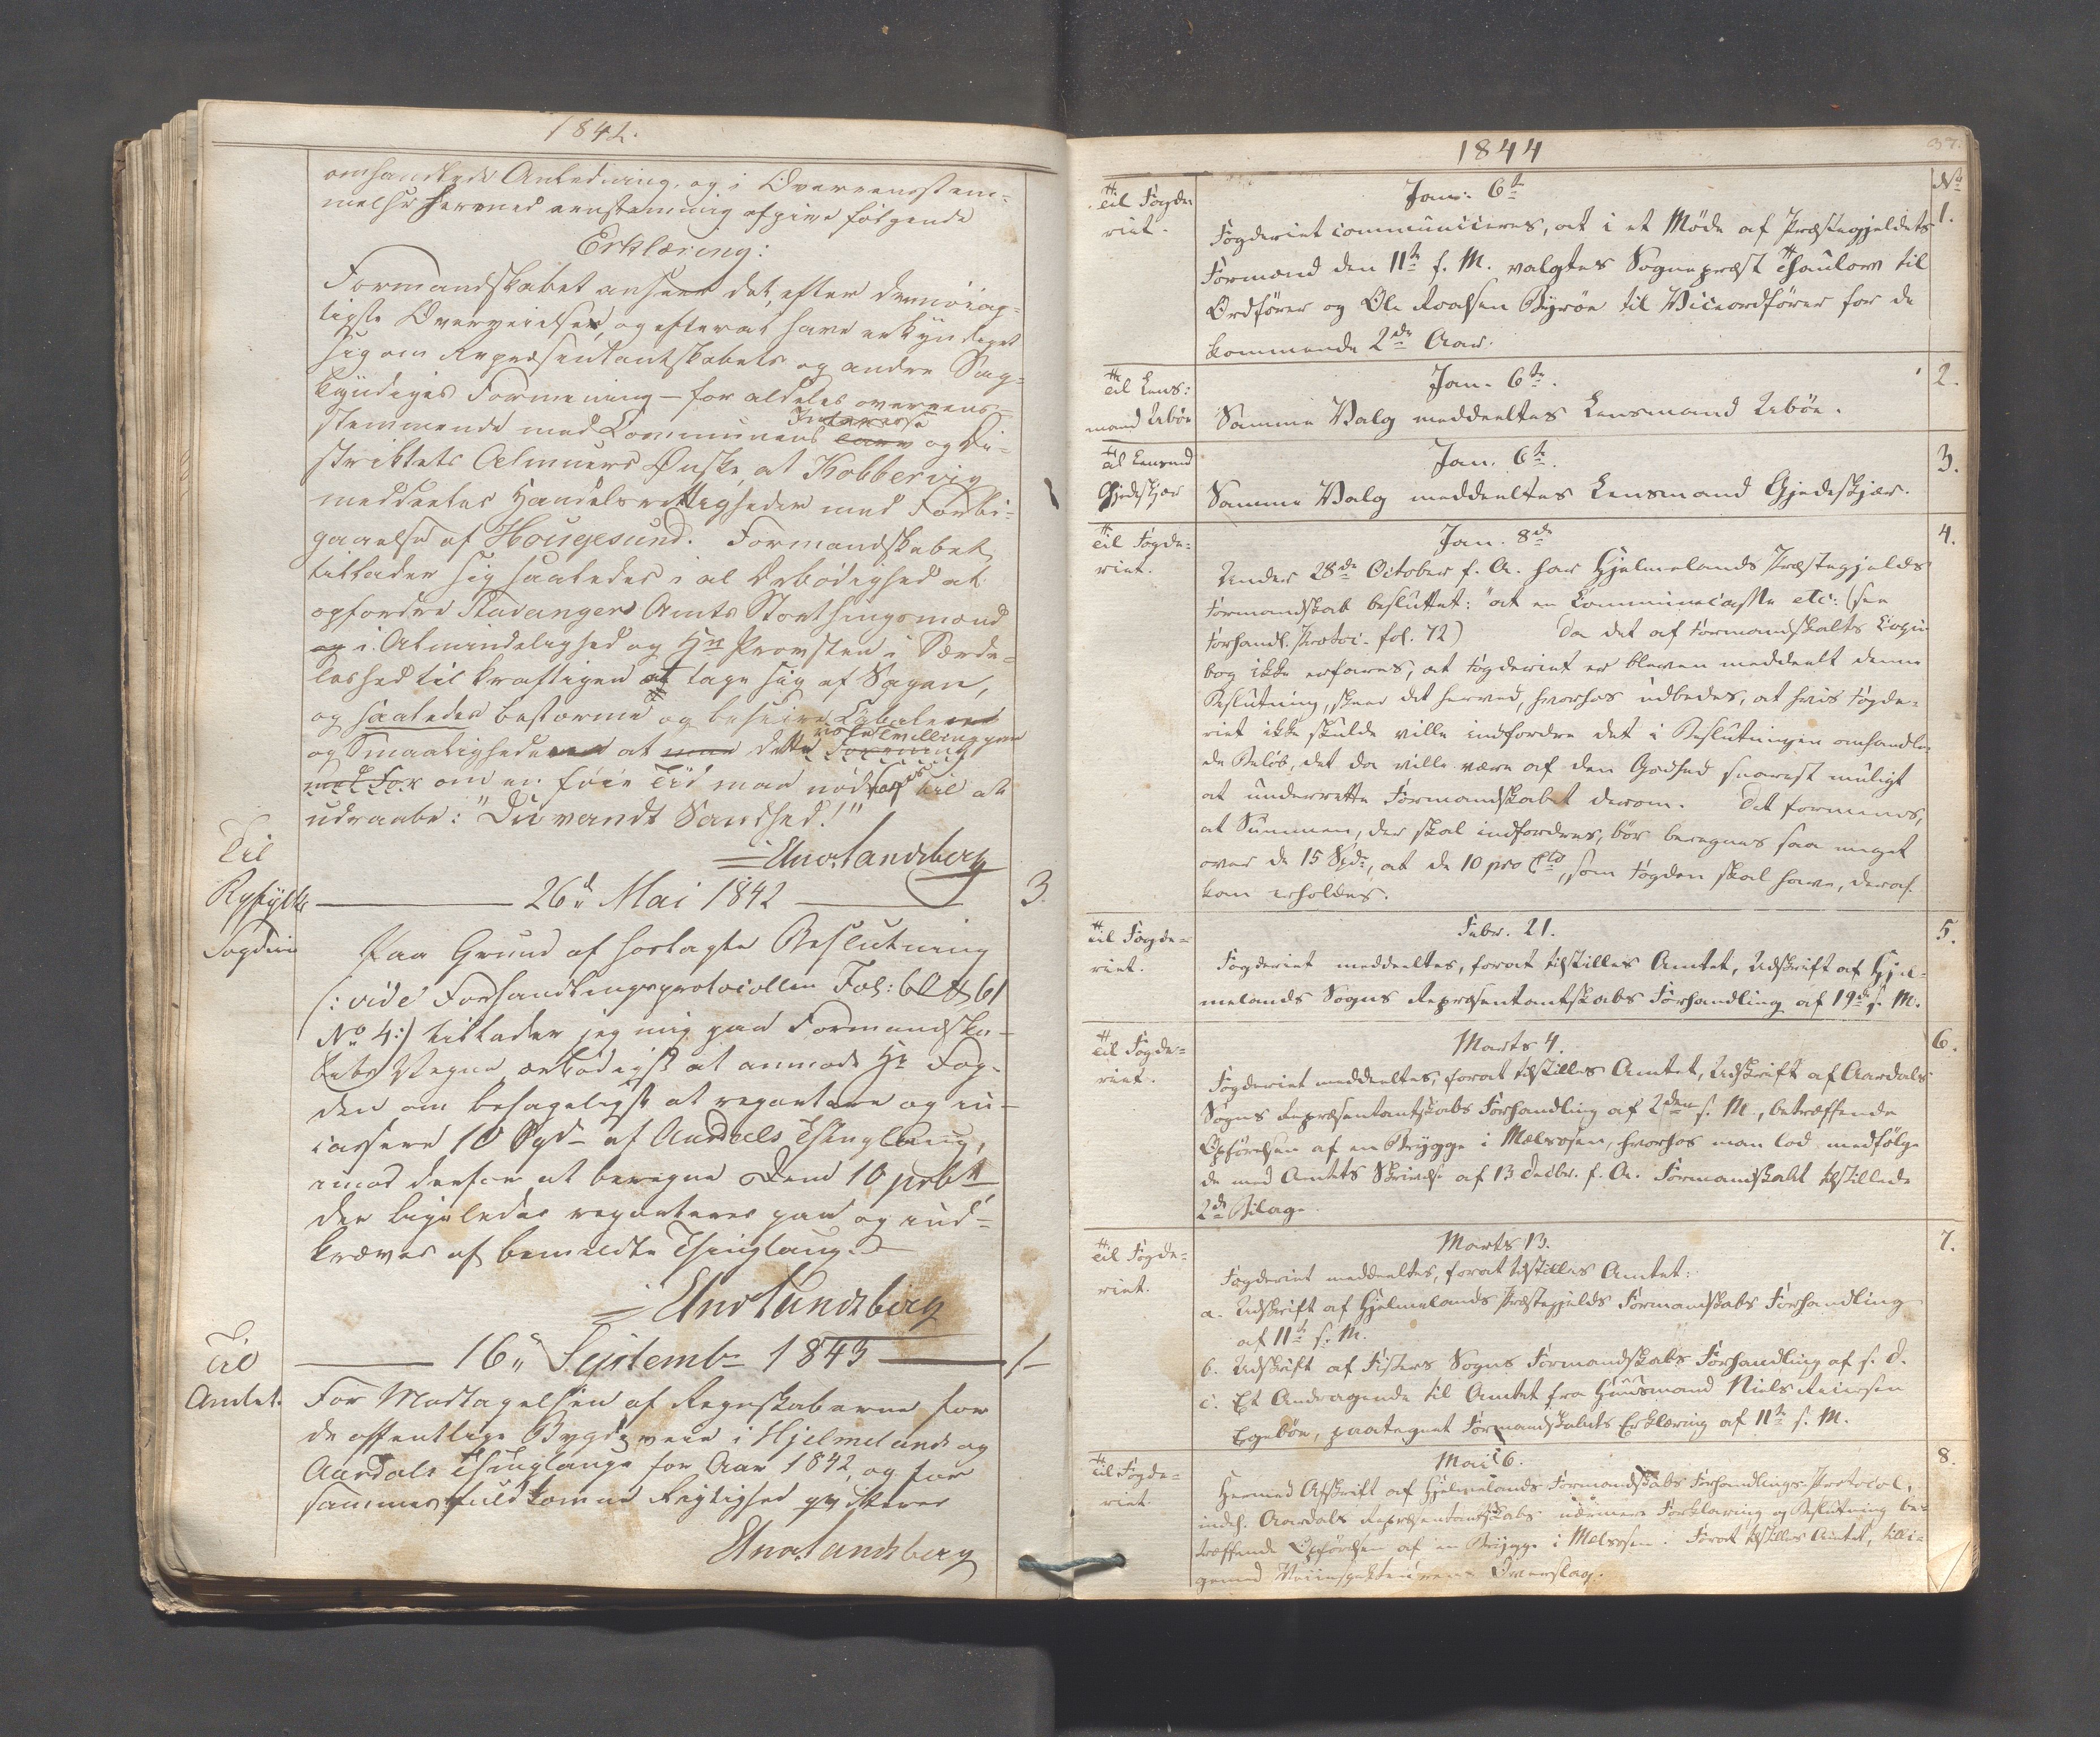 1842.
omhandlede Anledning, og i Overeensstem-
melse hermed eenstemmig afgive følgende
Erklæring:
Formandskabet anseer det, efter den nøiag-
tigste Overveielse, og efterat have erkyndiget
sig om Repræsentantskabets og andre Sag-
kyndiges Formening – for aldeles overeens-
stemmende med Communens Interesse og Di-
striktets Almues Ønske, at Kobbervig
meddeeles Handelsrettigheder med Forbi-
gaaelse af Hougesund. Formandskabet
tillader sig saaledes i al Ærbødighed at
opfordre Stavangers Amts Storthingsmænd
og i Almindelighed og Hr Provsten i Særde-
leshed til kraftigen at tage sig af Sagen,
og saaledes bestorme og beseire Cabaler
og Smaaligheder at dette
om en føie Tid maa nødes til at
udraabe: "Du vandt Sandhed!"
Ana Landsberg
Til
Ryfylke
Fogderie
26d Mai 1842
3.
Paa Grund af fortagte Beslutning
(: vide Forhandlingsprotocollen Fol: 60 & 61
No 4:) tillader jeg mig paa Formandska-
bets Vegne ærbødigst at anmode Hr Fog-
den om behageligst at repartere og in-
cassere 10 Spd af Aardals Thinglaug,
imod derfor at beregne Dem 10 prCt
der ligeledes reparteres paa og ind-
kræves af bemeldte Thinglaug.
Ana Landsberg
Til
Amtet.
16d Septembr 1843
1
For Modtagelsen af Regnskaberne for
de offentlige Bygdeveie i Hjelmelands og
Aardals Thinglauge for Aar 1842, og for
sammes fuldkomne Rigtighed qvitteres
Ana Landsberg
1844
37.
No
Til Fogde-
riet.
Jan: 6te
1.
Fogderiet communiceres, at i et Møde af Præstegjeldets
Formænd den 11te f. M. valgtes Sognepræst Thaulow til
Ordfører og Ole Roalsen Byrøe til Viceordfører for de
kommende 2de Aar.
Til Lens-
mand Ubøe
Jan. 6te.
2.
Samme Valg meddeeltes Lensmand Ubøe.
Til Lensmd
Gjedeskjær
Jan. 6te.
3.
Samme Valg meddeeltes Lensmand Gjedeskjær.
Til Fogde-
riet.
Jan. 8de
4.
Under 28de October f. A. har Hjelmelands Præstegjelds
Formandskab besluttet: "at en Communecasse etc: (see
Forhandl. Protoc. fol. 72) Da det af Formandskabets Copie
bog ikke erfares, at Fogderiet er bleven meddeelt denne
Beslutning, skeer det herved, hvorhos udbedes, at hvis Fogde-
riet ikke skulde ville indfordre det i Beslutningen omhandle-
de Beløb, det da ville være af den Godhed snarest muligt
at underrette Formandskabet derom. Det formenes,
at Summen, der skal indfordres, bør beregnes saa meget
over de 15 Spd, at de 10 pro Cto, som Fogden skal have, deraf
kan erholdes.
Til Fogde-
riet.
Febr. 21.
5.
Fogderiet meddeeltes, forat tilstilles Amtet, Udskrift af Hjel-
melands Sogns Repræsentantskabs Forhandling af 19de s. M.
Til Fogde-
riet.
Marts 4.
6.
Fogderiet meddeeltes, forat tilstilles Amtet, Udskrift af Aardals
Sogns Repræsentantskabs Forhandling af 2den s. M, betræffende
Opførelsen af en Brygge i Mælsosen, hvorhos man lod medfølge
de med Amtets Skrivelse af 13 Decbr. f. A. Formandskabet tilstillede
2de Bilage.
Til Fogde-
riet.
Marts 13.
7.
Fogderiet meddeeltes, forat tilstilles Amtet:
a. Udskrift af Hjelmelands Præstegjelds Formandskabs Forhandling
af 11te s. M.
b. Udskrift af Fisters Sogns Formandskabs Forhandling af s. D.
c. Et Andragende til Amtet fra Huusmand Niels Reiersen
Egebøe, paategnet Formandskabets Erklæring af 11te s. M.
Til Fogde-
riet.
Mai 6.
8.
Hermed Afskrift af Hjelmelands Formandskabs Forhandlings-Protocol,
indeh. Aardals Repræsentantskabs nærmere Forklaring og Beslutning be-
træffende Opførelsen af en Brygge i Mælsosen. Forat tilstilles Amtet, tilli-
gemed Veiinspekteurens Overslag.